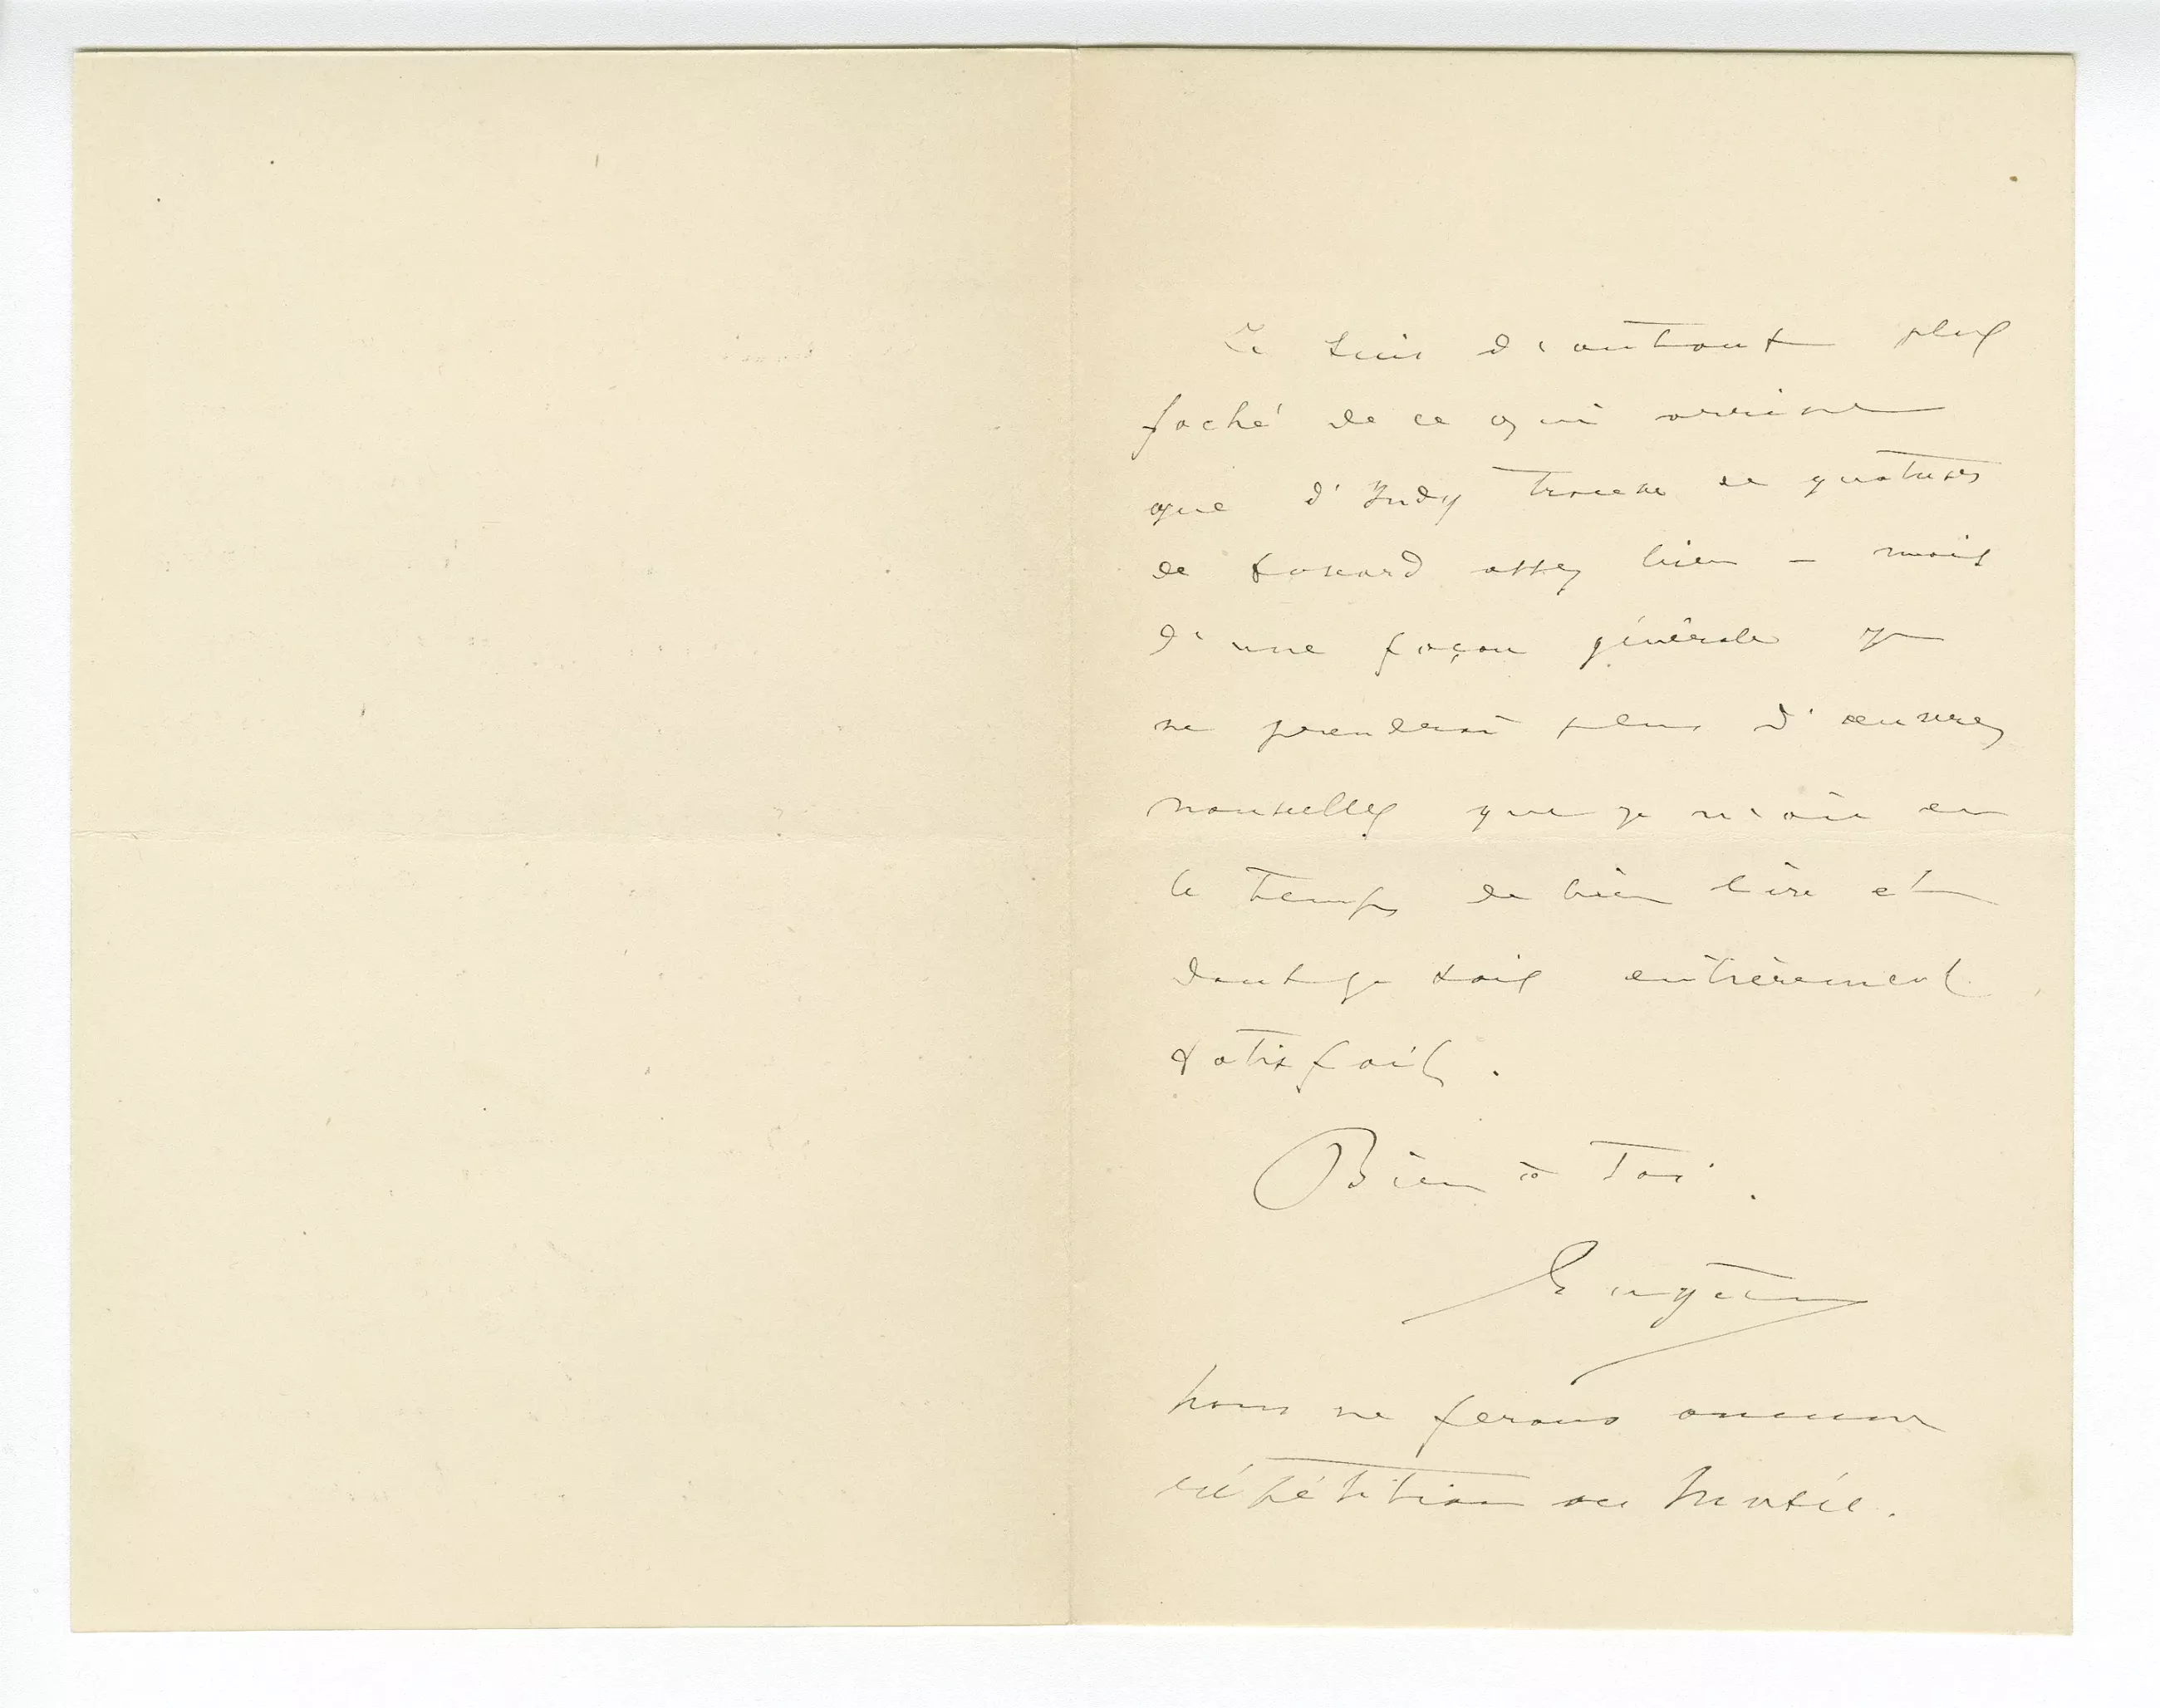 Je suis d'autant plus
faché de ce qui arrive
que d'Indy trouve ce quatuor
de Savard assez bien – mais
d'une façon générale je
ne prendrai plus d'œuvres
nouvelles que je n'aie eu
le temps de bien lire et
dont je sois entièrement
satisfait.
Bien à toi.
Eugène
nous ne ferons aucune
répétition au Musée.